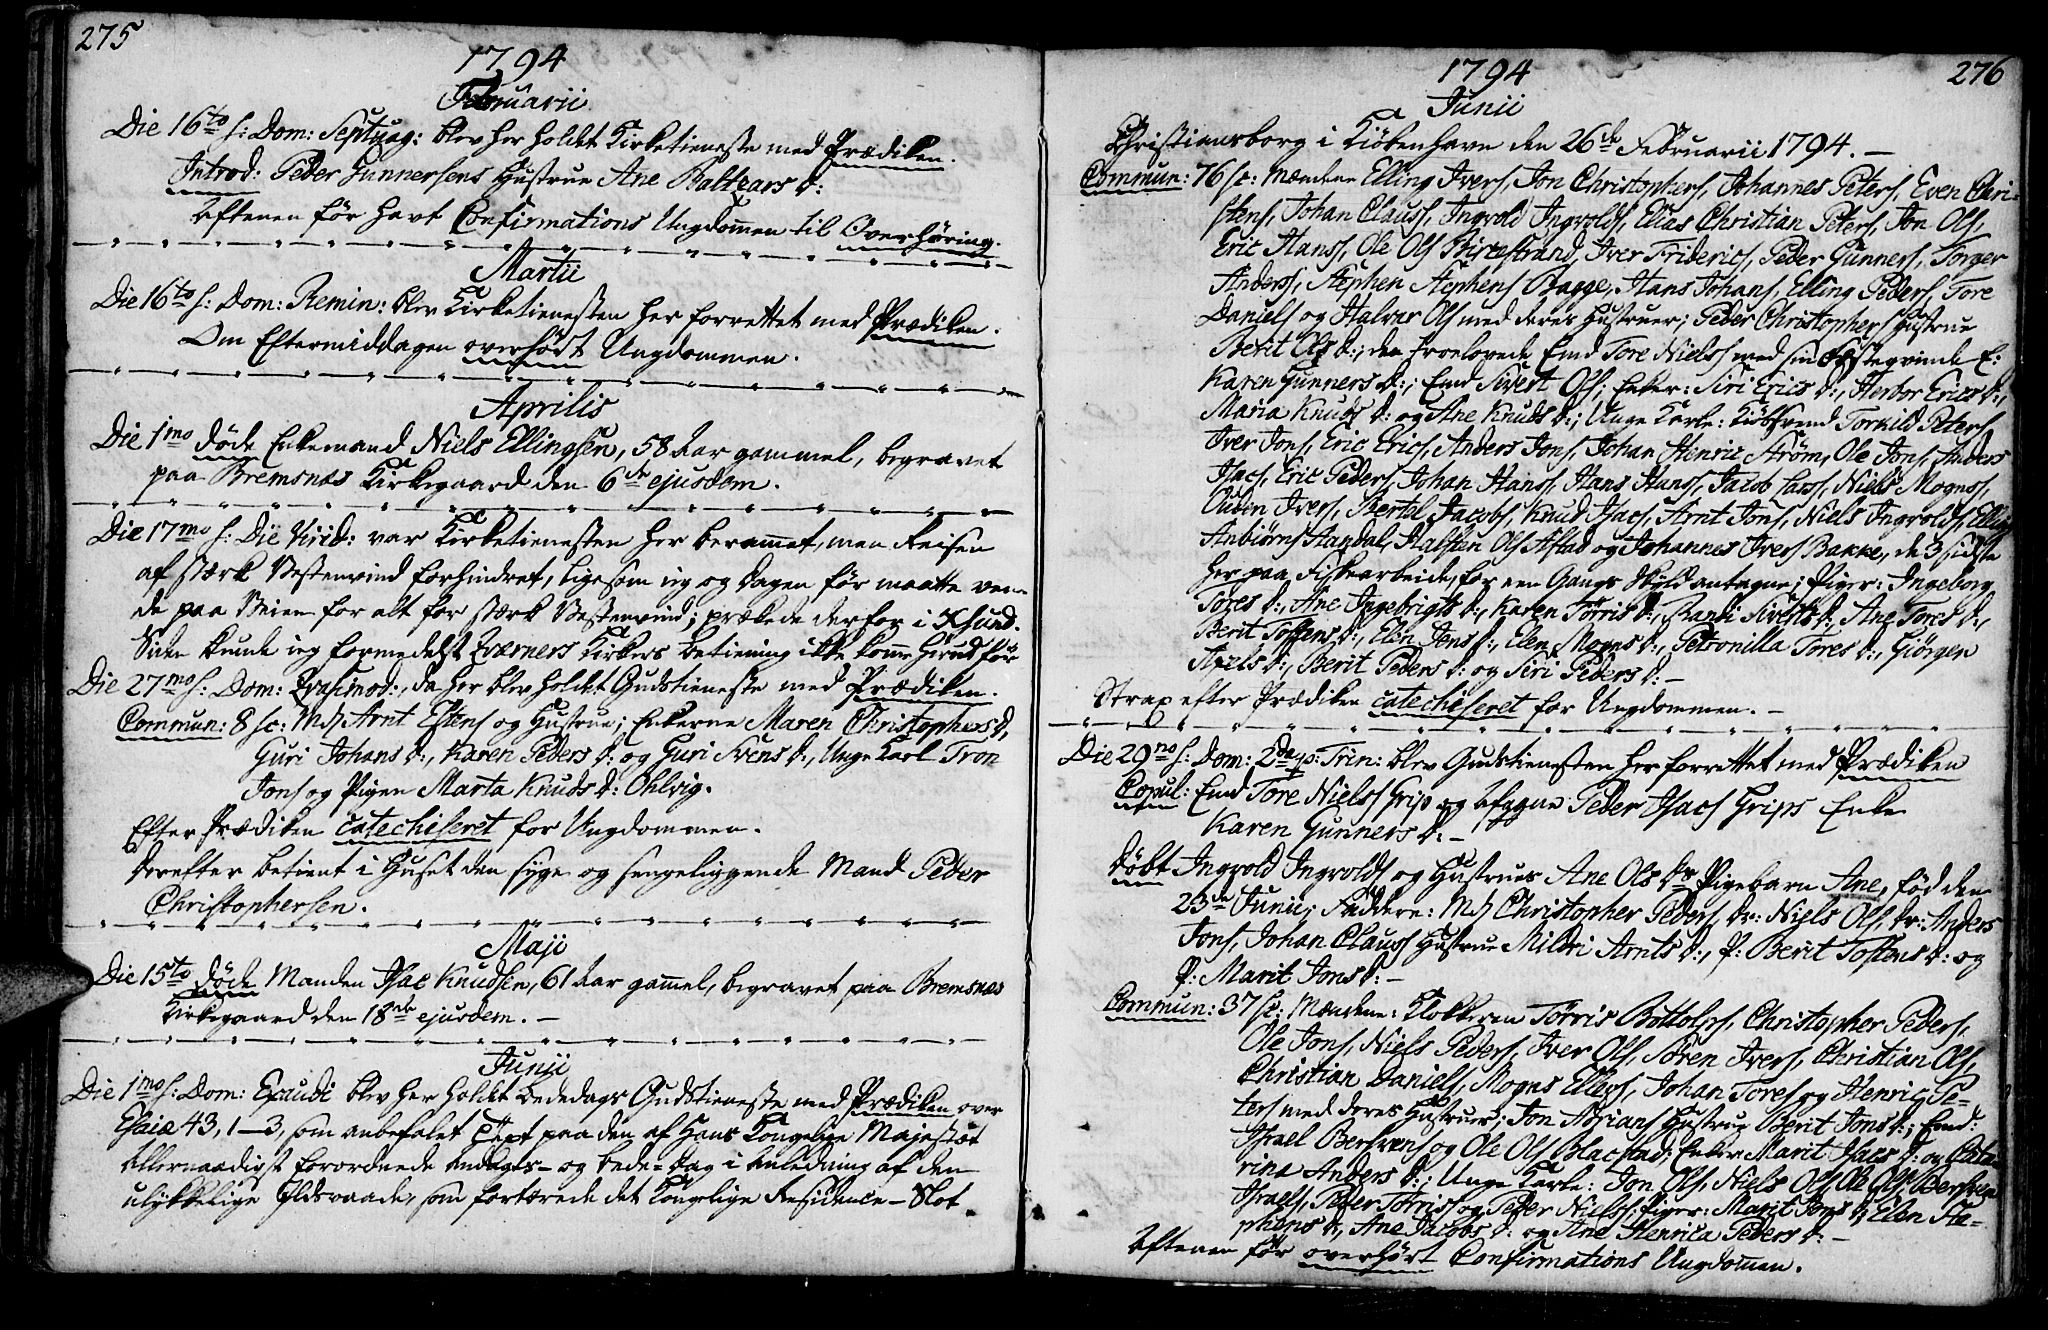 275
1794
Februarii
Die 16to s: Dom: Septuag: blev her holdt Kirketieneste med Prædiken.
Introd: Peder Gunnersens Hustrue Ane Baltzars d:
Aftenen før havt Confirmations Ungdommen til Overhøring.
Martii
Die 16to s: Dom: Remin: blev Kirketienesten her forrettet med Prædiken.
Om Eftermiddagen overhødt Ungdommen.
Aprilis
Die 1mo døde Enkemand Niels Ellingsen, 58 Aar gammel, begravet
paa Bremsnæs Kirkegaard den 6te ejusdem.
Die 17mo s: Die Virid: var Kirketienesten her beramet, men Reisen
af stærk Vestenvind forhindret, ligesom jeg og Dagen før maatte ven-
de paa Veien for alt for stærk Vestenvind; prækede derfor i Xsund.
Siden kunde jeg formedelst Qværners Kirkes betiening ikke komme herud før
Die 27mo s: Dom: Qvasimod:, da her blev holdet Gudstieneste med Prædiken.
Commun: 8 sc: Md Arnt Estens og Hustrue; Enkerne Maren Christophers d,
Guri Johans d:, Karen Peders d: og Guri Svens d:, Unge Karl Tron
Jons og Pigen Marta Knuds d: Ohlvig.
Efter Prædiken catechiseret for Ungdommen.
Derefter betient i Huset den syge og sengeliggende Mand Peder
Christophersen.
Maji
Die 15to døde Manden Isac Knudsen, 61 Aar gamel, begravet paa Bremsnæs
Kirkegaard den 18de ejusdem. -
Junii
Die 1mo s: Dom: Exaudi blev her holdt bededags Gudstieneste med Prædiken over
Esaiæ 43, 1-3, som anbefalet Text paa den af Hans Kongelige Majestæt
Allernaadigst forordnede Andagts- og bede-Dag i Anledning af den
ulykkelige Ildsvaade, som fortærede det Kongelige Residence-Slot
276
1794
Junii
Christiansborg i Kiøbenhavn den 26de Februarii 1794. -
Commun: 76 sc: Mændene Elling Ivers, Jon Christophers, Johannes Peters, Even Chri-
stens, Johan Clauss, Ingvold Ingvolds, Elias Christian Peters, Jon Ols,
Eric Hanss, Ole Ols Birkestrand, Iver Friderics, Peder Gunners, Torger
Anderss, Stephen Stephens Bagge, Hans Johans, Elling Peders, Tore
Daniels og Halvar Ols med deres Hustruer; Peder Christophers Hustrue
Berit Ols d:; den troelovede Emd Tore Nielss med sin Fæsteqvinde E:
Karen Gunners d:; Emd Sivert Ols; Enker: Siri Erics d:, Herbor Erics d:,
Maria Knuds d: og Ane Knuds d:; Unge Karle: Kiøbsvend Torkild Peters,
Iver Jons, Eric Erics, Anders Jons, Johan Henric Strøm, Ole Jons, Anders
Isacs, Eric Peders, Johan Hanss, Hans Hanss, Jacob Larss, Niels Mognss,
Ouden Ivers, Bertel Jacobs, Knud Isacs, Arnt Jons, Niels Ingvolds, Elling
Anbiørns Aandal, Halsten Ols Aftad og Johannes Ivers Bakke, de 3 sidste
her paa Fiskearbeide, for een Gangs Skyld antagne; Piger: Ingeborg
Tores d:, Ane Ingebrigts d:, Karen Tørris d:, Randi Siverts d:, Ane Tores d:,
Berit Tostens d:, Elen Jens d:, Elen Mogns d:, Petronilla Tores d:, Giørgen
Axels d:, Berit Peders d: og Siri Peders d: -
Strax efter Prædiken catechiseret for Ungdommen. -
Die 29no s: Dom: 2da p: Trin: blev Gudstienesten her forrettet med Prædiken
Copul: Emd Tore Nielss Grip og Afgangne Peder Isacs Grips Enke
Karen Gunners d: -
Døbt Ingvold Ingvolds og Hustrues Ane Ols drs Pigebarn Ane, fød den
23de Junii; Faddere: Md Christopher Peders, dr: Niels Ols, dr: Anders
Jons, Johan Clauss Hustrue Mildri Arnts d:, P: Berit Tostens d: og
P: Marit Jons d: -
Commun: 37 sc: Mændene: Klokkeren Tørris Bottolfs, Christopher Peders,
Ole Jons, Niels Peders, Iver Ols, Søren Ivers, Christian Ols,
Christian Daniels, Mogns Ellevs, Johan Tores og Henric Pe-
ters med deres Hustruer; Jon Adrians Hustrue Berit Jons d:; Emd:
Israel Bersvens og Ole Ols Blacstad; Enker Marit Isacs d: og Cata-
rina Anders d:; Unge Karle: Jon Ols, Niels Ols, Ole Ols, Bersven
Israels, Peter Tørris og Peder Nielss; Piger: Marit Jons d:, Elen Ste-
phens d:, Ane Jacobs d: og Ane Henrica Peders d: -
Aftenen før overhørt Confirmations Ungdommen.